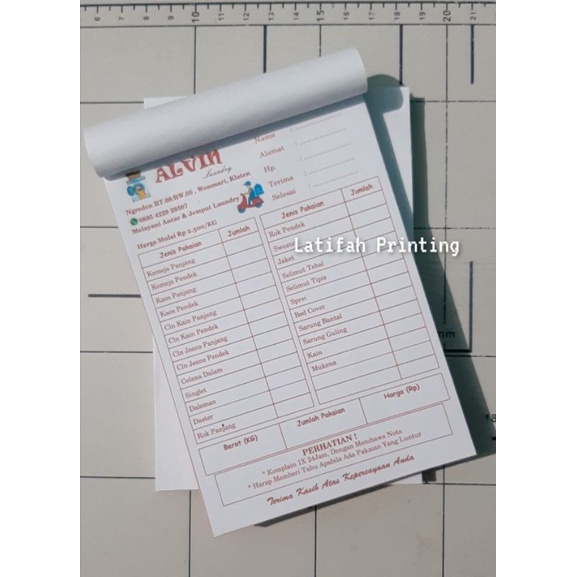 ALVIN
Laundry
Ngroden RT.08/RW.05 , Wonosari, Klaten
Melayani Antar & Jemput Laundry
Harga Mulai Rp 2.500/KG
Nama
Alamat
Hp.
Terima
Selesai
Jenis Pakaian Jumlah
Kemeja Panjang
Kemeja Pendek
Kaos Panjang
Kaos Pendek
Cln Kain Panjang
Cln Kain Pendek
Cln Jeans Panjang
Cln Jeans Pendek
Celana Dalam
Singlet
Daleman
Daster
Rok Panjang
Jenis Pakaian Jumlah
Rok Pendek
Jaket
Selimut Tebal
Selimut Tipis
Sprei
Bed Cover
Sarung Bantal
Sarung Guling
Kain
Mukena
Berat (KG) Jumlah Pakaian Harga (Rp)
PERHATIAN !
* Komplain 1X 24Jam, Dengan Membawa Nota
* Harap Memberi Tahu Apabila Ada Pakaian Yang Luntur
Terima Kasih Atas Kepercayaan Anda
Latifah Printing
10
15
20